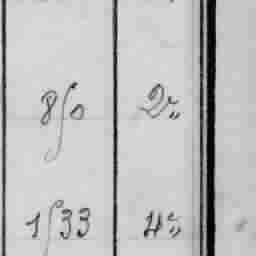 8∫0 2"
1∫33 4"